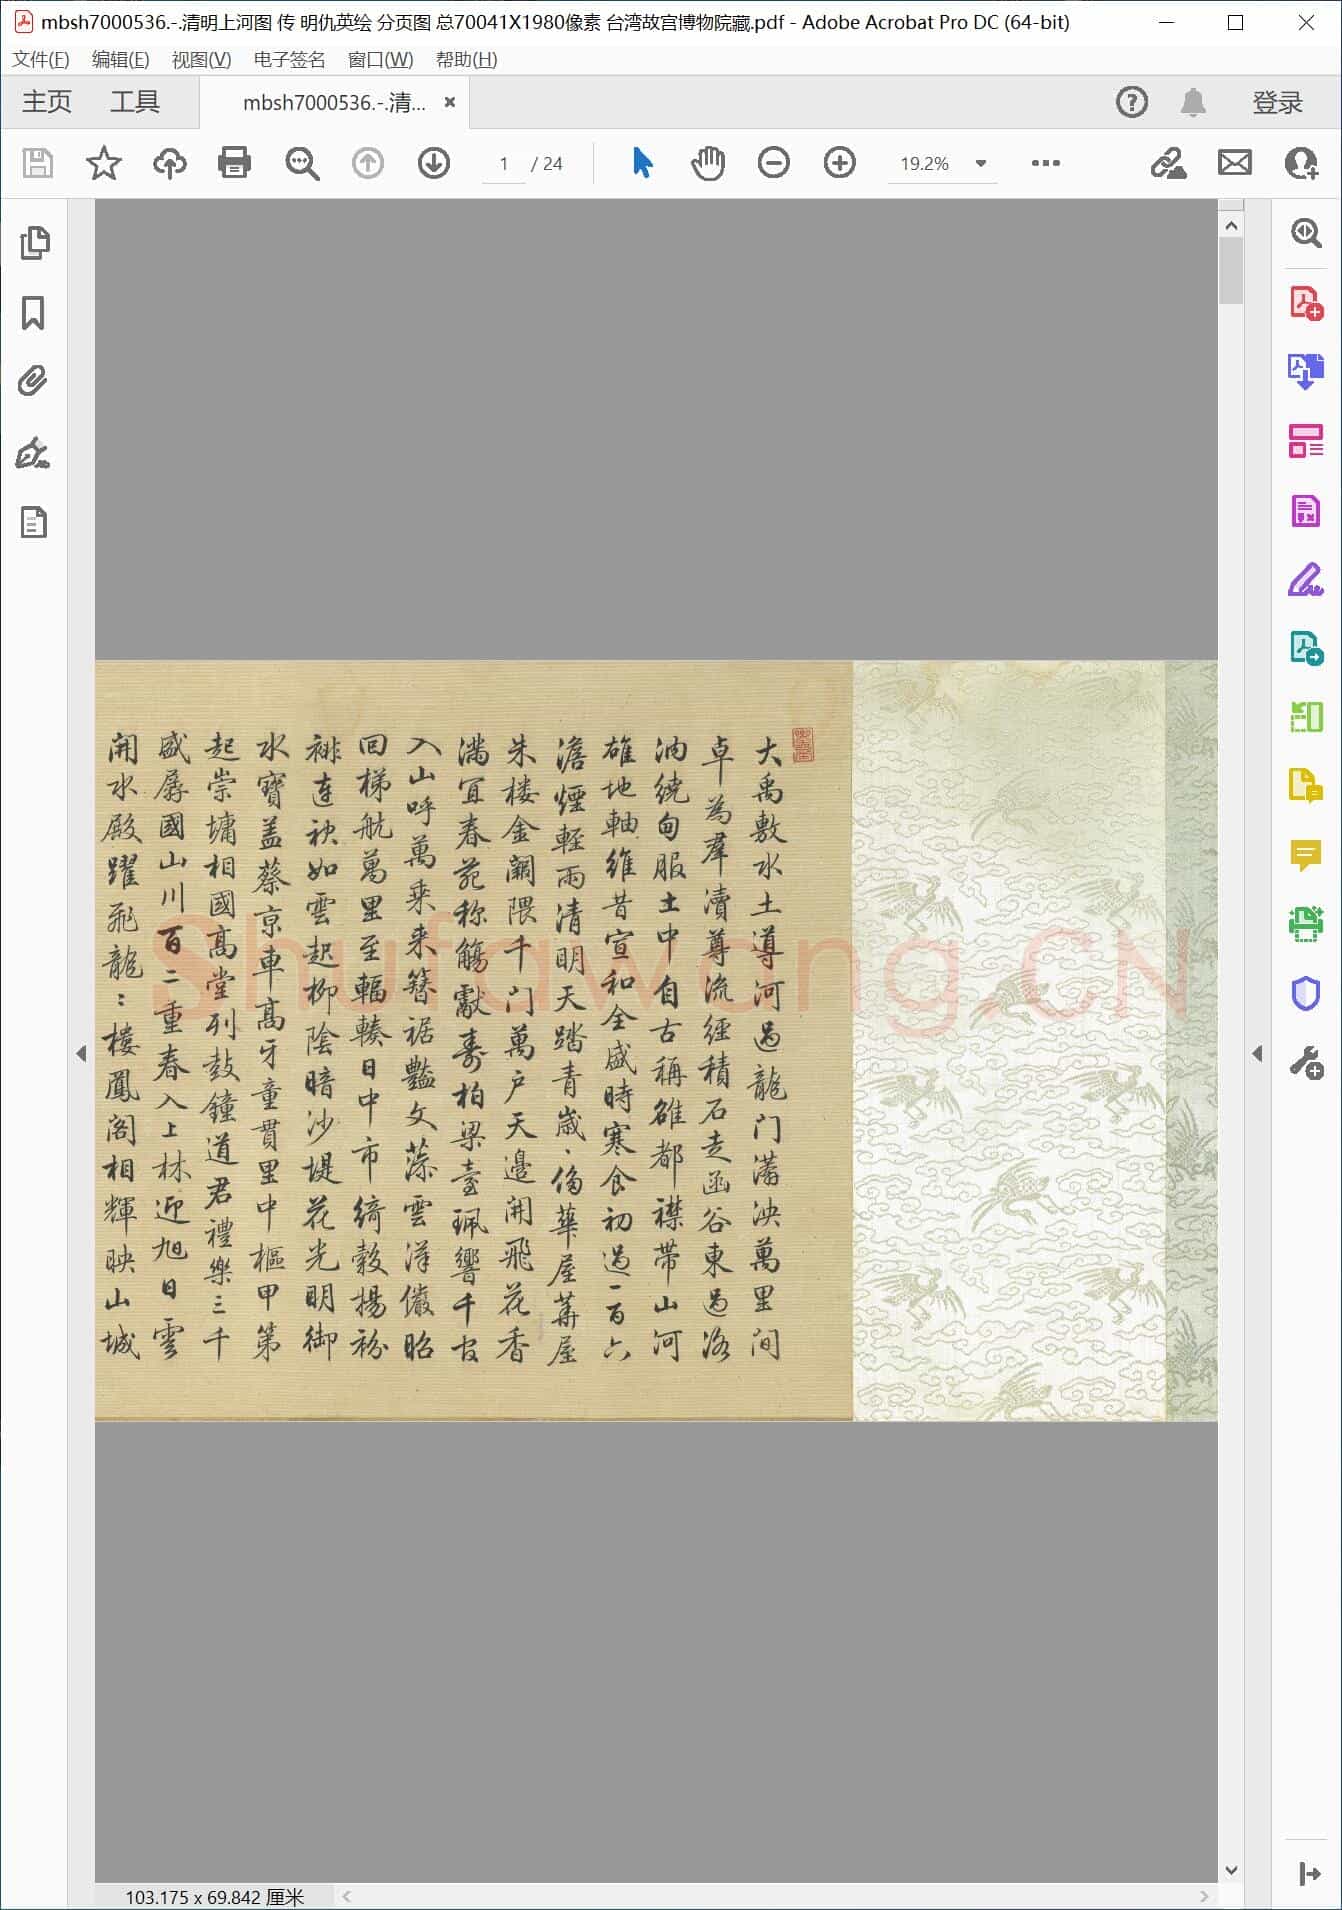 mbsh7000536.-.清明上河图 传 明仇英绘 分页图 总70041X1980像素 台湾故宫博物院藏.pdf - Adobe Acrobat Pro DC (64-bit)
文件(F) 编辑(E) 视图(V) 电子签名 窗口(W) 帮助(H)
主页 工具 mbsh7000536.-.清... × 登录
1 / 24 19.2%
大禹敷水土導河過龍门潘泱萬里间
卓為羣瀆尊流經積石走函谷東過洛
汭繞甸服土中自古稱雄都襟帶山河
雄地軸維昔宣和全盛時寒食初過一百六
澹煙輕雨清明天踏青歲〻侈華屋
朱樓金闕隈千门萬户天邊開飛花香
滿宜春苑称觴獻壽柏梁臺珮響千官
入山呼萬乘来簪裾豔文藻雲漢儼昭
回梯航萬里至輻輳日中市綺縠揚袀
連袂如雲起柳陰暗沙堤花光明御
水寶盖蔡京車髙牙童貫里中樞甲第
起崇墉相國髙堂列鼓鐘道君禮樂三千
盛孱國山川百二重春入上林迎旭日雲
開水殿躍飛龍〻樓鳳阁相輝映山城
Shufawang.CN
103.175 x 69.842 厘米